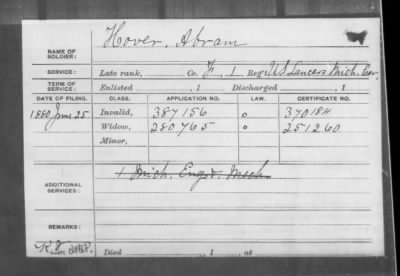 Hover, Abram
NAME OF SOLDIER:
SERVICE: Late rank, Co. F, 1 Reg't U.S. Lancers Mich. Cav.
TERM OF SERVICE: Enlisted , 1 Discharged , 1
DATE OF FILING. CLASS. APPLICATION NO. LAW. CERTIFICATE NO.
1880 June 25 Invalid, 387156 o 370184
Widow, 280765 o 251260
Minor,
1 Mich. Eng. Mech.
ADDITIONAL SERVICES:
REMARKS:
Died , 1 , at